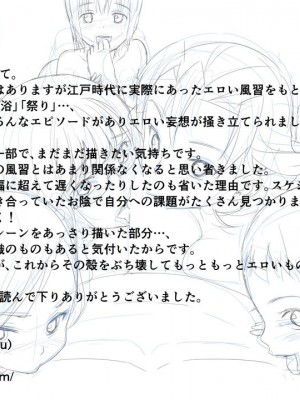 て。
はありますが江戸時代に実際にあったエロい風習をもと
浴」「祭り」…、
ろんなエピソードがありエロい妄想が掻き立てられまし
一部で、まだまだ描きたい気持ちです。
の風習とはあまり関係なくなると思い省きました。
幅に超えて遅くなったりしたのも省いた理由です。スケシ
き合っていたお陰で自分への課題がたくさん見つかりま
く！
シーンをあっさり描いた部分…、
識のものもあると気付いたからです。
が、これからその殻をぶち壊してもっともっとエロいもの
読んで下りありがとうございました。
u)
m/